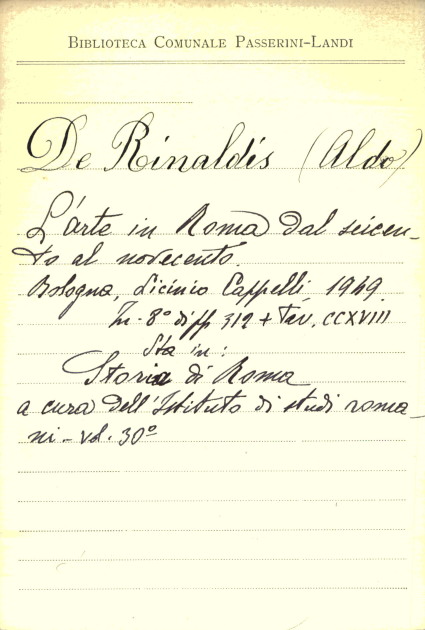 BIBLIOTECA COMUNALE PASSERINI-LANDI
De Rinaldis (Aldo)
L'arte in Roma dal seicen-
to al novecento.
Bologna, Licinio Cappelli, 1949.
In-8° di pp 312 + Tav. CCXVIII
Sta in:
Storia di Roma
a cura dell'Istituto di studi roma-
ni - vol. 30°